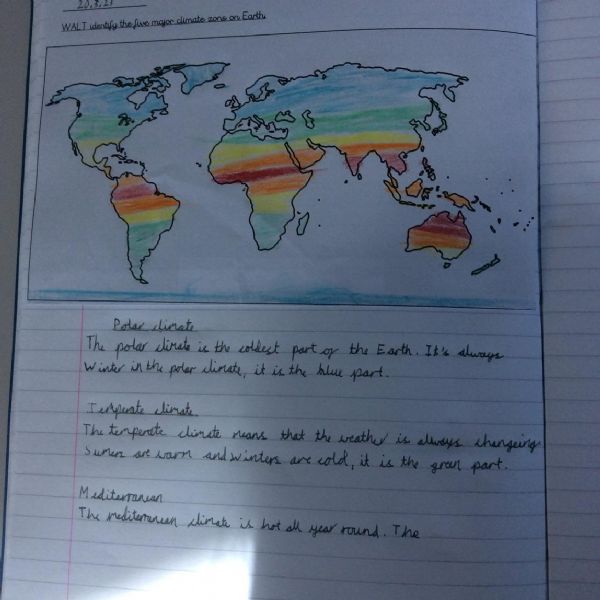 20.8.21
WALT identify the five major climate zone on Earth.
Polar climate
The polar climate is the coldest part of the Earth. It's always
Winter in the polar climate, it is the blue part.
Temperate climate
The temperate climate means that the weather is always changeing
Sumers are warm and winters are cold, it is the green part.
Mediterranean
The mediterranean climate is hot all year round. The